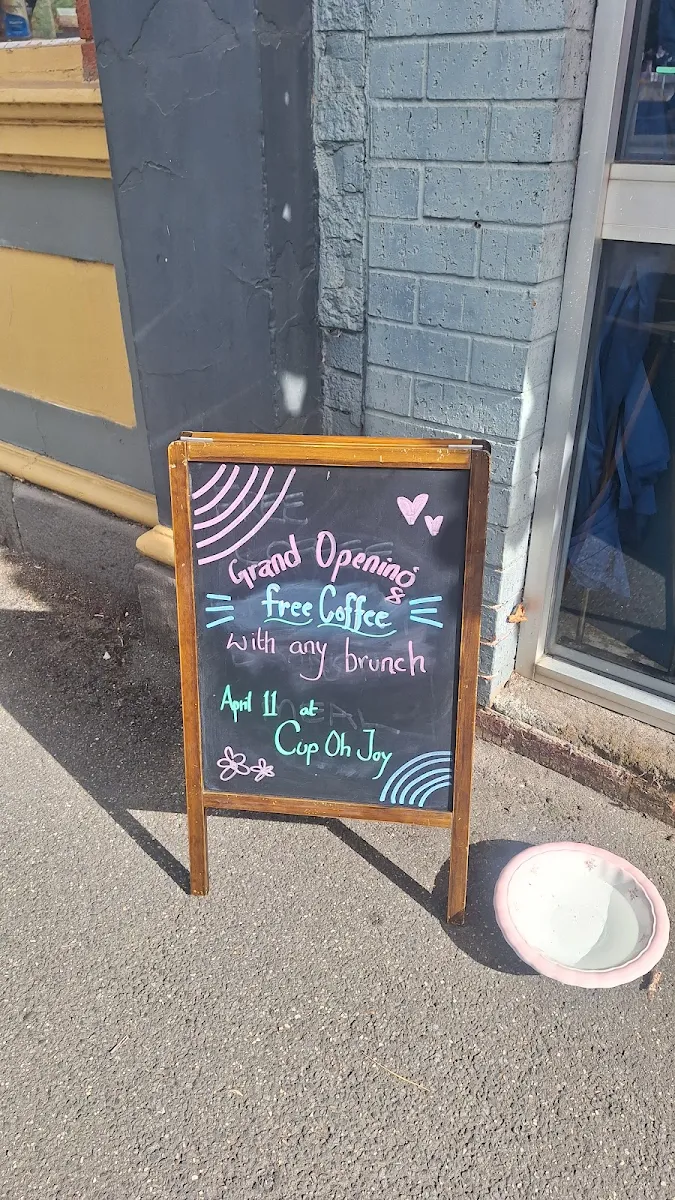 Grand Opening
&
free Coffee
with any brunch
April 11 at
Cup Oh Joy